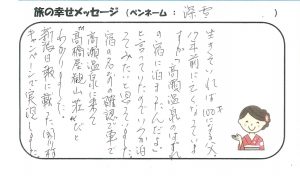 旅の幸せメッセージ (ペンネーム: 深雪 )
生きていれば100になる父、
17年前に亡くなっていま
すが「高瀬温泉のはずれ
の宿に泊まったんだよ」
と言ってた
てみたいと思ってました。
宿の名前の確認で車で
高瀬温泉に来て
"高橋屋観山荘"だと
わかりました。
新潟日報に載った関川村
キャンペーンで実現しました。